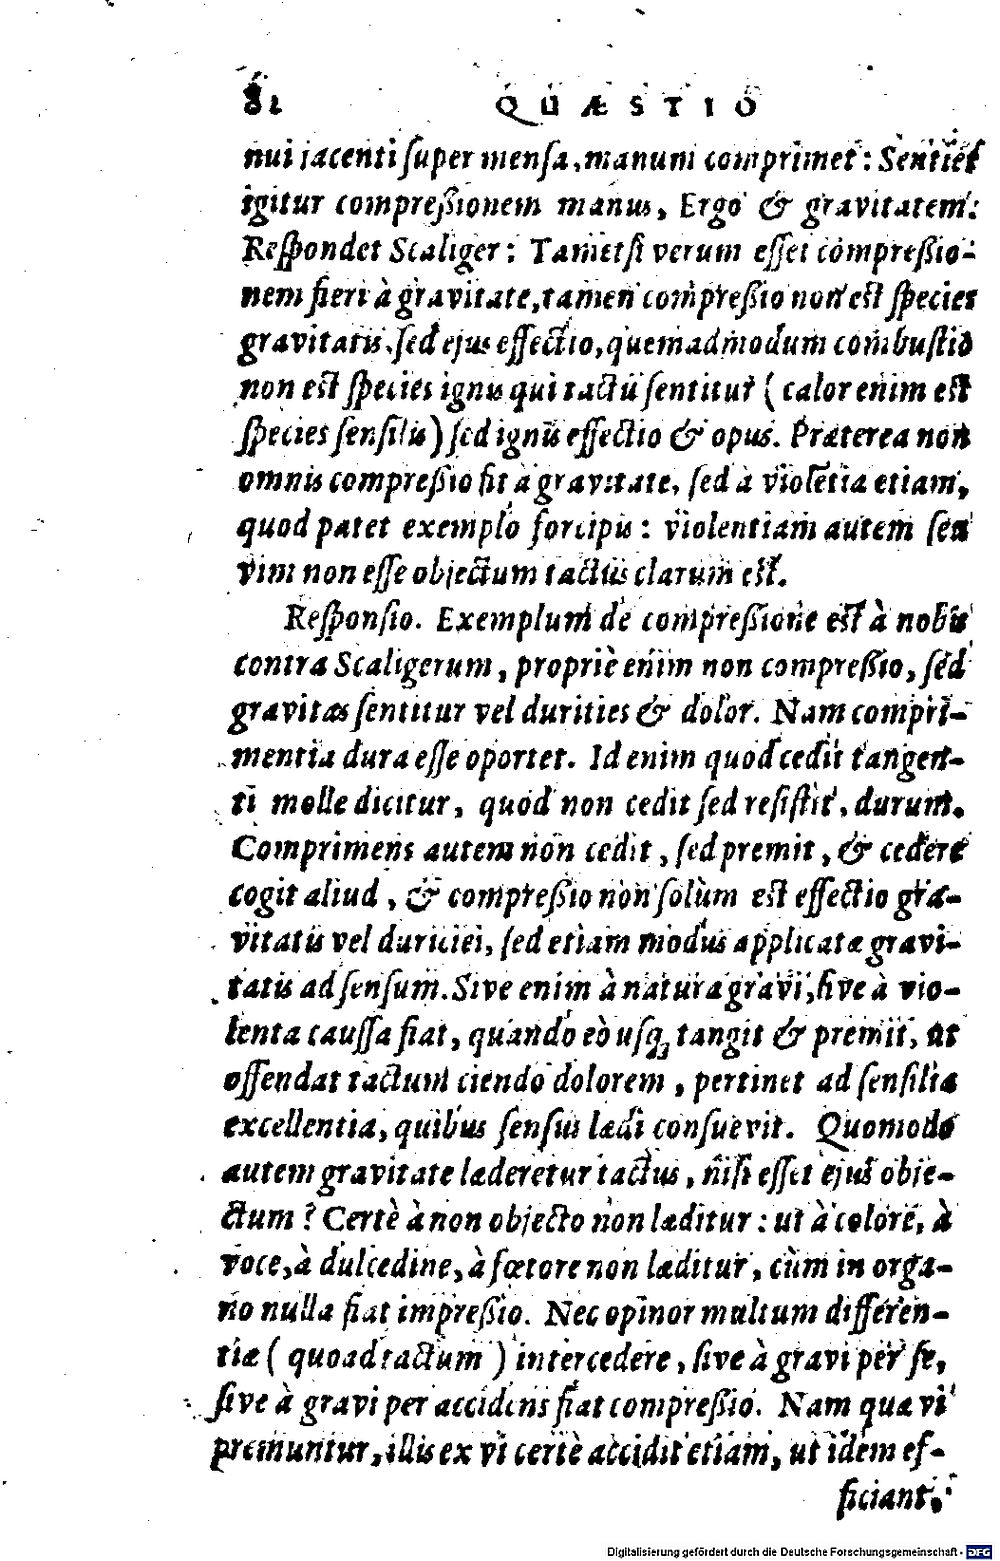 82 QUÆSTIO
nui jacenti ſuper menſa, manum comprimet: Sentiet
igitur compreßionem manus, Ergo & gravitatem:
Reſpondet Scaliger: Tametſi verum eſſet compreßio-
nem fieri à gravitate, tamen compreßio non est ſpecies
gravitatis, ſed ejus effectio, quemadmodum combuſtio
non est ſpecies ignis qui tactu ſentitur (calor enim est
ſpecies ſenſilis) ſed ignis effectio & opus. Præterea non
omnis compreßio fit à gravitate, ſed à violētia etiam,
quod patet exemplo forcipis: violentiam autem ſeu
vim non eſſe objectum tactus clarum est.
Reſponſio. Exemplum de compreßione est à nobis
contra Scaligerum, propriè enim non compreßio, ſed
gravitas ſentitur vel durities & dolor. Nam compri-
mentia dura eſſe oportet. Id enim quod cedit tangen-
ti molle dicitur, quod non cedit ſed reſiſtit, durum.
Comprimens autem non cedit, ſed premit, & cedere
cogit aliud, & compreßio non ſolùm est effectio gra-
vitatis vel duriciei, ſed etiam modus applicatæ gravi-
tatis ad ſenſum. Sive enim à natura gravi, ſive à vio-
lenta cauſſa fiat, quando eò uſq; tangit & premit, ut
offendat tactum ciendo dolorem, pertinet ad ſenſilia
excellentia, quibus ſenſus lædi conſuevit. Quomodo
autem gravitate læderetur tactus, niſi eſſet ejus obje-
ctum? Certè à non objecto non læditur: ut à colore, à
voce, à dulcedine, à fœtore non læditur, cùm in orga-
no nulla fiat impreßio. Nec opinor multum differen-
tiæ (quoad tactum) intercedere, ſive à gravi per ſe,
ſive à gravi per accidens fiat compreßio. Nam quæ vi
premuntur, illis ex vi certè accidit etiam, ut idem ef-
ficiant,
Digitalisierung gefördert durch die Deutsche Forschungsgemeinschaft - DFG